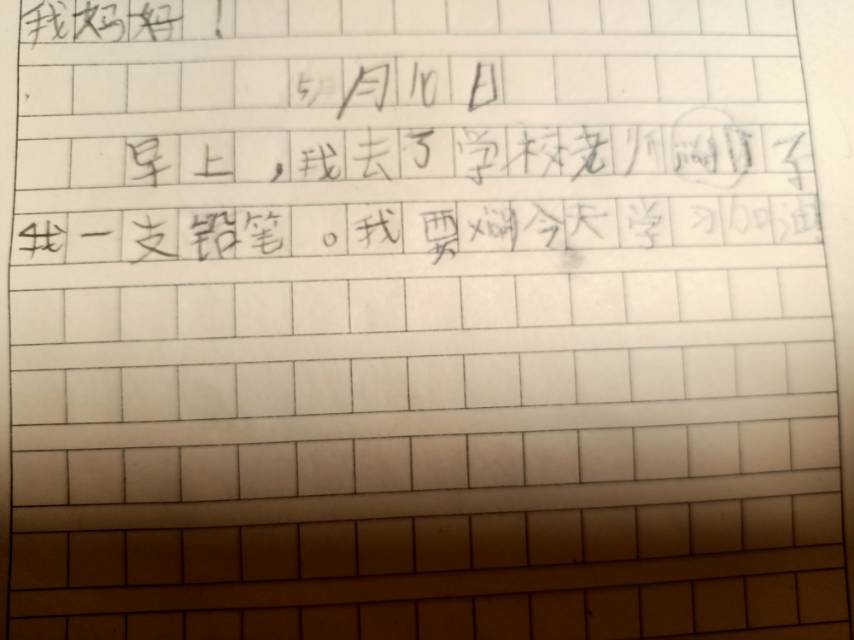 我妈好！
5月10日
早上，我去了学校老师了
我一支铅笔。我要今天学习加油